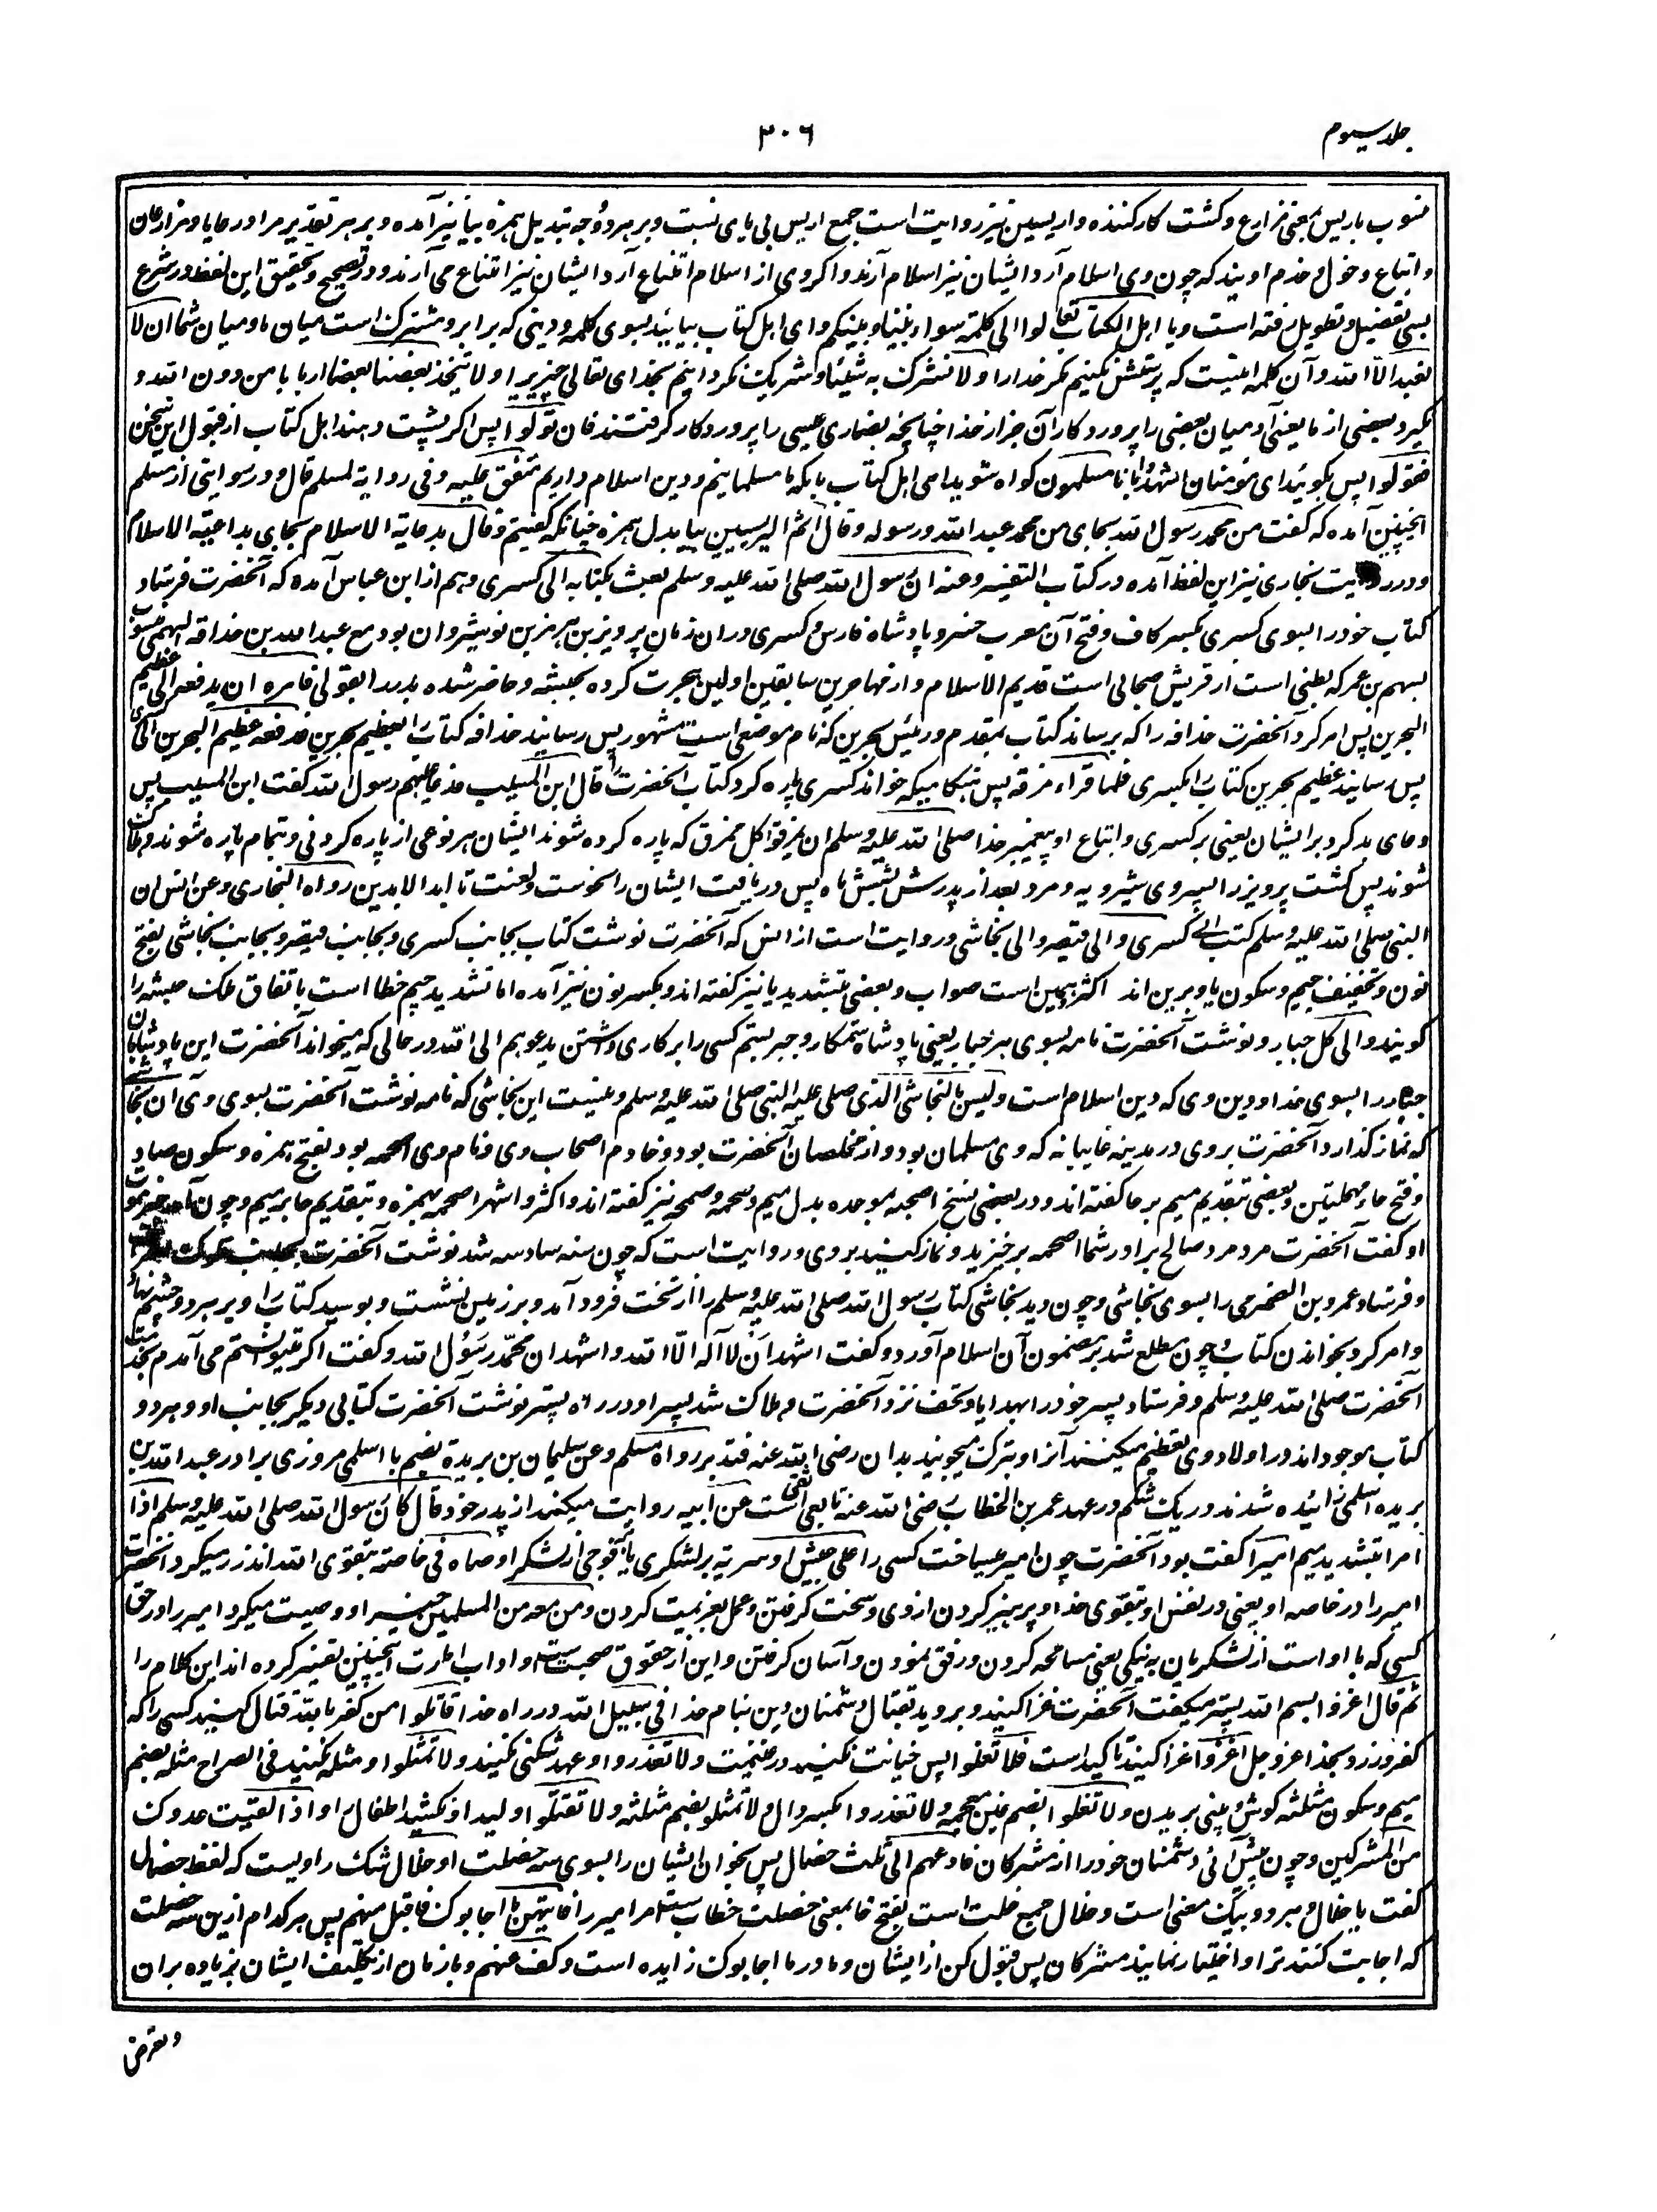 جلد سیوم
۳۰۶
منسوب باریس بمعنی مزارع و کشت کار کننده و اریسین نیز روایت است جمع اریس بی یای نسبت و بر هر دو وجه تبدیل همزه بیا نیز آمده و بر هر تقدیر مراد رعایا و مزارعان
و اتباع و خول و خدم اویند که چون وی اسلام آرد ایشان نیز اسلام آرند و اگر وی از اسلام امتناع آرد ایشان نیز امتناع می آرند و در تصحیح و تحقیق این لفظ در شرع
بسی تفصیل و تطویل رفته است و یا اهل الکتاب تعالوا الی کلمة سواء بیننا و بینکم و ای اهل کتاب بیائید بسوی کلمه و دینی که برابر و مشترک است میان ما و میان شما ان لا
نعبد الا الله و آن کلمه اینست که پرستش نکنیم مگر خدا را و لا نشرک به شیئا و شریک نگردانیم بخدای تعالی چیزیرا و لا یتخذ بعضنا بعضا اربابا من دون الله و
نگیرد بعضی از ما یعنی آدمیان بعضی را پروردگاران جز از خدا چنانچه نصاری عیسی را پروردگار گرفتند فان تولوا پس اگر پشت دهند اهل کتاب از قبول این سخن
فقولوا پس بگوئید ای مؤمنان اشهدوا بانا مسلمون گواه شوید ای اهل کتاب بآنکه ما مسلمانیم و دین اسلام داریم متفق علیه و فی روایة لمسلم قال و در روایتی از مسلم
اینچنین آمده که گفت من محمد رسول الله بجای من محمد عبد الله و رسوله و قال اثم الیریسیین بیا بدل همزه چنانکه گفتیم و قال بدعایة الاسلام بجای بداعیة الاسلام
و در روایت بخاری نیز این لفظ آمده در کتاب التفسیر و عنه ان رسول الله صلی الله علیه وسلم بعث بکتابه الی کسری و هم از ابن عباس آمده که آنحضرت فرستاد
کتاب خود را بسوی کسری بکسر کاف و فتح آن معرب خسرو پادشاه فارس و کسری در ان زمان پرویز بن هرمز بن نوشیروان بود مع عبد الله بن حذافة السهمی منسوب
بسهم بن عمر که بطنی است از قریش صحابی است قدیم الاسلام و از مهاجرین سابقین اولین هجرت کرده بحبشه و حاضر شده بدر را بقولی فامره ان یدفعه الی عظیم
البحرین پس امر کرد آنحضرت حذافه را که برساند کتاب بمقدم و رئیس بحرین که نام موضعی است مشهور پس رسانید حذافه کتاب را بعظیم بحرین فدفعه عظیم البحرین الی کسری
پس رسانید عظیم بحرین کتاب را بکسری فلما قراء مزقه پس هنگامیکه خواند کسری پاره کرد کتاب آنحضرت را قال ابن المسیب فدعا علیهم رسول الله گفت ابن المسیب پس
دعای بد کرد بر ایشان یعنی بر کسری و اتباع او پیغمبر خدا صلی الله علیه وسلم ان یمزقوا کل ممزق که پاره کرده شوند ایشان هر نوعی از پاره کردنی و بتمام پاره شوند و هلاک
شوند پس کشت پرویز را پسر وی شیرویه و مرد بعد از پدرش بشش ماه پس دریافت ایشان را نحوست و لعنت تا ابد الابدین رواه البخاری و عن انس ان
النبی صلی الله علیه وسلم کتب الی کسری و الی قیصر و الی نجاشی و روایت است از انس که آنحضرت نوشت کتاب بجانب کسری و بجانب قیصر و بجانب نجاشی بفتح
نون و تخفیف جیم و سکون یا و برین اند اکثر و همین است صواب و بعضی بتشدید یا نیز گفته اند و بکسر نون نیز آمده اما تشدید جیم خطا است باتفاق ملک حبشه را
گویند و الی کل جبار و نوشت آنحضرت نامه بسوی هر جبار یعنی پادشاه ستمکار و جبر بستم کسی را بر کاری داشتن یدعوهم الی الله در حالی که میخواند آنحضرت این پادشاهان
جبار را بسوی خدا و دین وی که دین اسلام است و لیس بالنجاشی الذی صلی علیه النبی صلی الله علیه وسلم و نیست این نجاشی که نامه نوشت آنحضرت بسوی وی آن نجاشی
که نماز گذارد آنحضرت بر وی در مدینه غایبانه که وی مسلمان بود و از مخلصان آنحضرت بود و خادم اصحاب وی و نام وی اصحمه بود بفتح همزه و سکون صاد
و فتح حاء مهملتین و بعضی بتقدیم میم بر حا گفته اند و در بعضی نسخ اصحبه موحده بدل میم و صحمه و صمحه نیز گفته اند و اکثر و اشهر اصحمه بهمزه و بتقدیم حا بر میم و چون آمد خبر موت
او گفت آنحضرت مرد مرد صالح برادر شما اصحمه برخیزید و نماز کنید بر وی و روایت است که چون سنه سادسه شد نوشت آنحضرت بجانب ملوک
و فرستاد عمرو بن الضمری را بسوی نجاشی و چون دید نجاشی کتاب رسول الله صلی الله علیه وسلم را از تخت فرود آمد و بر زمین نشست و بوسید کتاب را و بر هر دو چشم نهاد
و امر کرد بخواندن کتاب و چون مطلع شد بر مضمون آن اسلام آورد و گفت اشهد ان لا اله الا الله و اشهد ان محمد رسول الله و گفت اگر میتوانستم می آمدم بخدمت
آنحضرت صلی الله علیه وسلم و فرستاد پسر خود را بهدایا و تحف نزد آنحضرت و هلاک شد پسر او در راه پستر نوشت آنحضرت کتابی دیگر بجانب او و هر دو
کتاب موجود اند در اولاد وی تعظیم میکنند آنرا و تبرک میجویند بدان رضی الله عنه فتدبر رواه مسلم و عن سلیمان بن بریدة بضم با اسلمی مروزی برادر عبد الله بن
بریده اسلمی زائیده شدند در یک شکم در عهد عمر بن الخطاب رضی الله عنه تابعی ثقه است عن ابیه روایت میکند از پدر خود قال کان رسول الله صلی الله علیه وسلم اذا
امر بتشدید میم امیرا گفت بود آنحضرت چون امیر میساخت کسی را علی جیش او سریة بر لشکری یا فوجی از لشکر اوصاه فی خاصته بتقوی الله اندرز میکرد آنحضرت
امیر را در خاصه او یعنی در نفس او بتقوی خدا و پرهیز کردن از وی و سخت گرفتن و عمل بعزیمت کردن و من معه من المسلمین خیرا و وصیت میکرد امیر را در حق
کسی که با او است از لشکریان به نیکی یعنی مسامحه کردن و رفق نمودن و آسان گرفتن و این از حقوق صحبت است و اداب امارت اینچنین تفسیر کرده اند این کلام را
ثم قال اغزوا بسم الله پستر میگفت آنحضرت غزا کنید و بروید بقتال دشمنان دین بنام خدا فی سبیل الله در راه خدا قاتلوا من کفر بالله قتال کنید کسی را که
کفر ورزد بخدا عز و جل اغزوا غزا کنید تاکید است فلا تغلوا پس خیانت نکنید در غنیمت و لا تغدروا و عهد شکنی نکنید و لا تمثلوا و مثله نکنید فی الصراح مثله بضم
میم و سکون مثلثه گوش و بینی بریدن و لا تغلوا بضم غین معجمه و لا تغدروا بکسر دال و لا تمثلوا بضم مثلثه و لا تقتلوا ولیدا و نکشید اطفال را و اذا لقیت عدوک
من المشرکین و چون پیش آئی دشمنان خود را از مشرکان فادعهم الی ثلث خصال پس بخوان ایشان را بسوی سه خصلت او خلال شک راویست که لفظ خصال
گفت یا خلال و هر دو بیک معنی است و خلال جمع خلت است بفتح خا بمعنی خصلت خطاب است مر امیر را فایتهن ما اجابوک فاقبل منهم پس هر کدام ازین سه خصلت
که اجابت کنند ترا و اختیار نمایند مشرکان پس قبول کن از ایشان و ما در ما اجابوک زایده است و کف عنهم و باز مان از تکلیف ایشان بزیاده بران
و تعرض